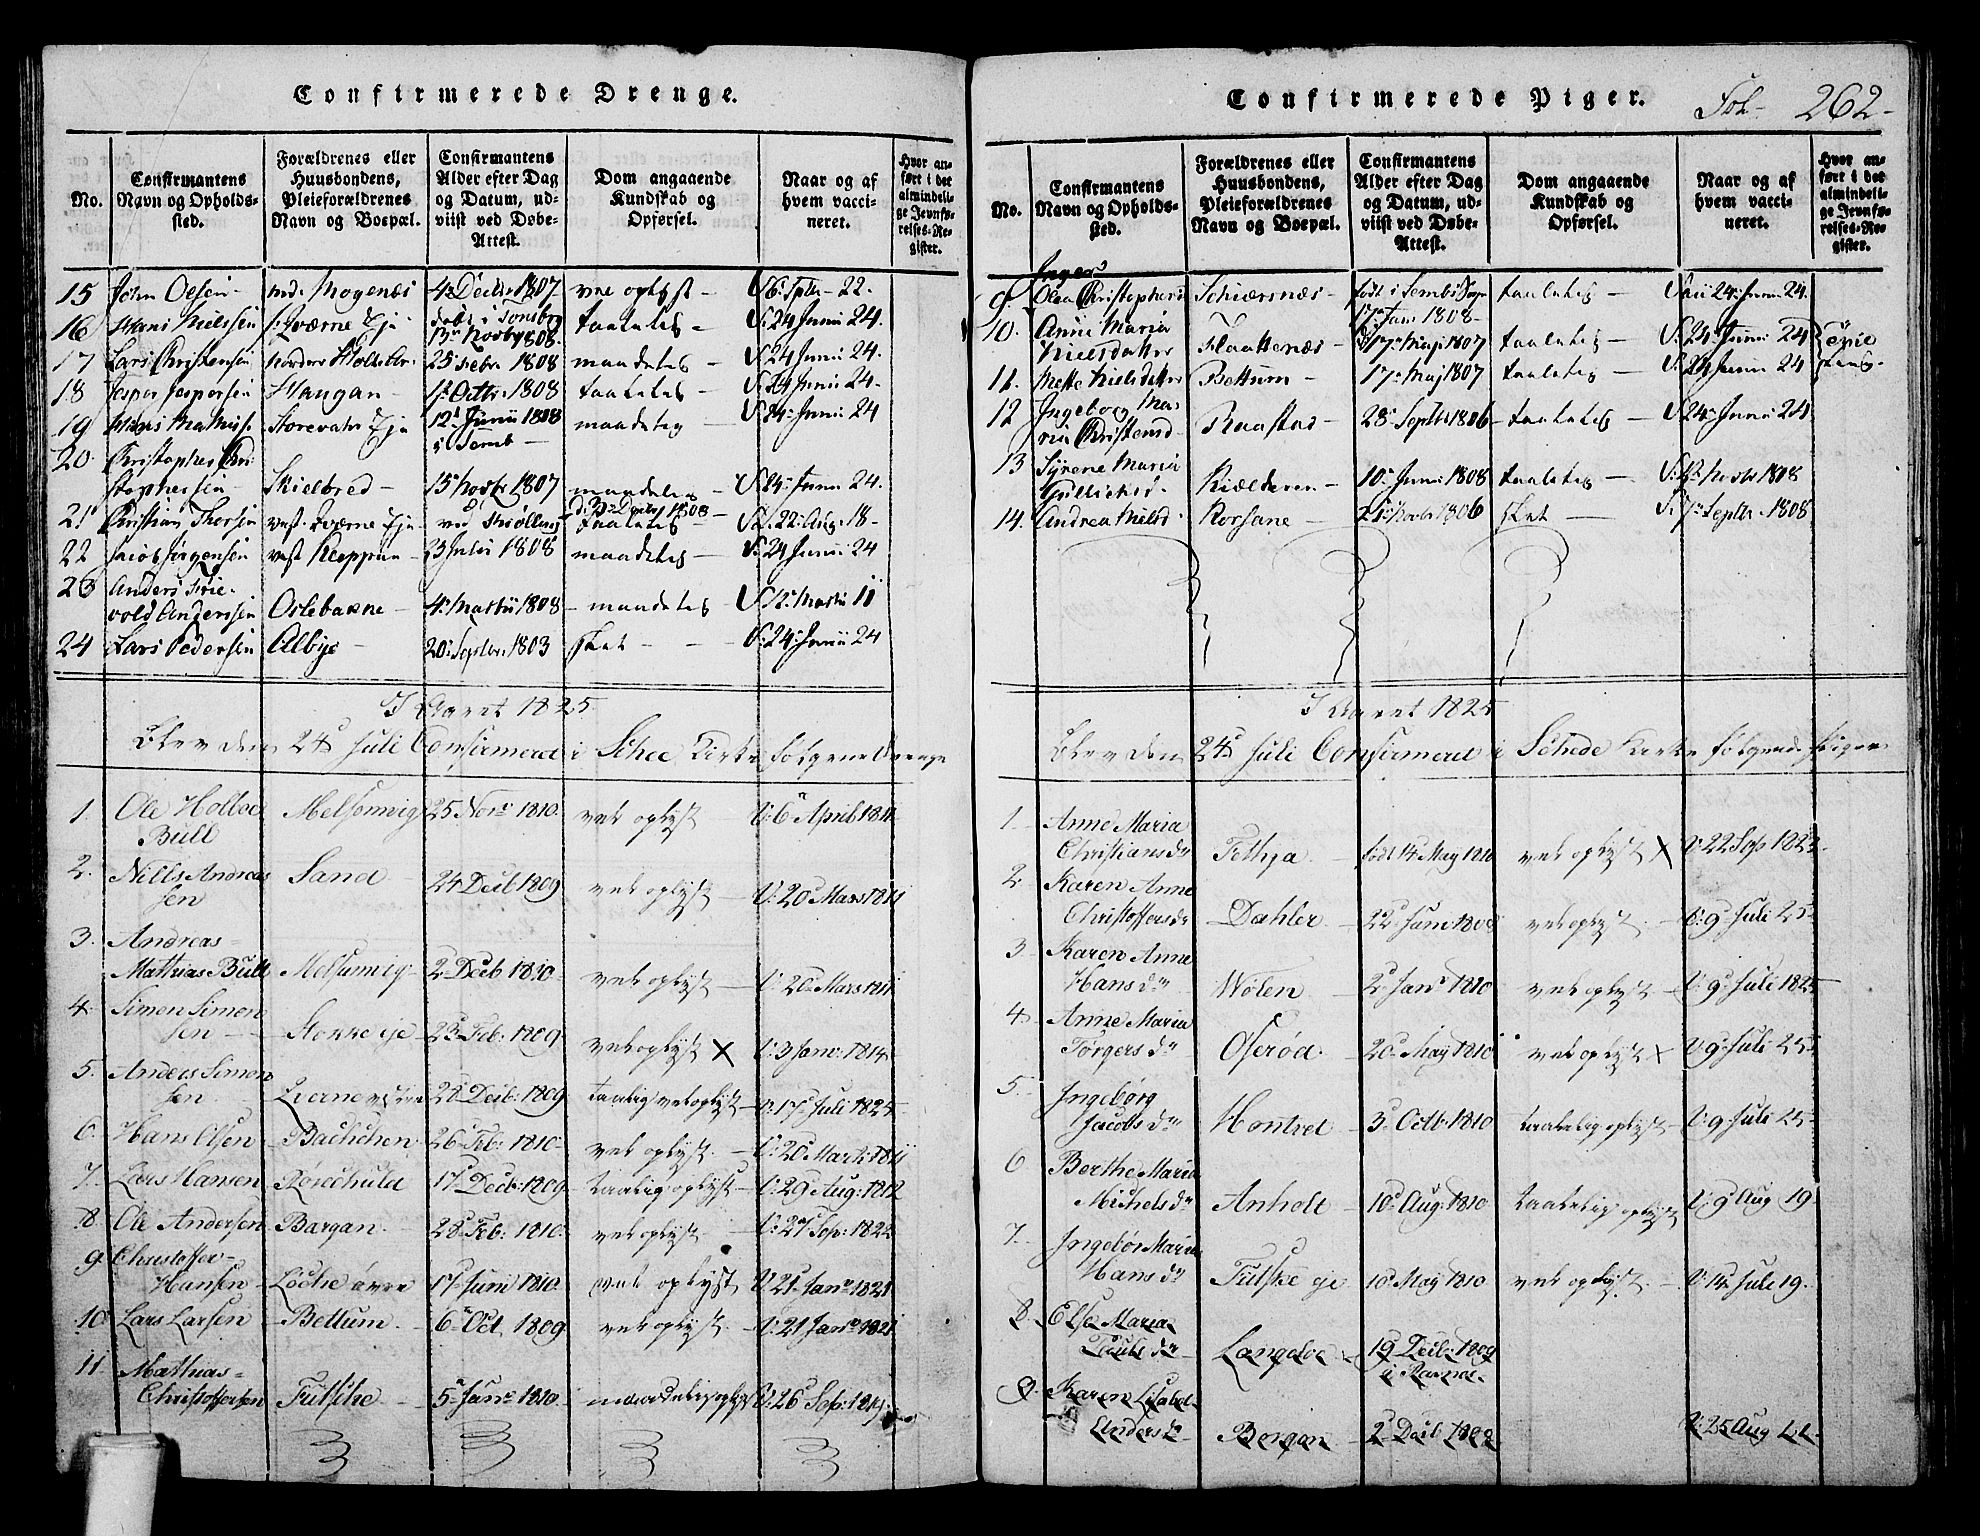 Confirmerede Drenge.
No.
Confirmantens Navn og Opholds-sted.
Forældrenes eller Huusbondens, Pleieforældrenes Navn og Boepæl.
Confirmantens Alder efter Dag og Datum, ud-viist ved Døbe-Attest.
Dom angaaende Kundskab og Opførsel.
Naar og af hvem vacci-neret.
Hvor an-ført i det almindeli-ge Jevnfø-relses-Re-gister.
15 John Olsen - Mogenæs 4 Decbr 1807 - V: 6 Sptbr - 22.
16 Hans Nielssen Qværne Eje døbt i Tonsberg 13 Novbr 1808. taaleleg - V: 24 Junii 24.
17 Lars Christensen 25 Febr 1808 maadeleg - V: 24 Junii 24.
18 Jesper Jespersen Haugan - 1 Octbr 1808 taaleleg - V: 24 Junii 24.
19 Storevahr Eje 12 Junii 1808 i Semb - maadeleg V: 24 Junii 24
20 Christopher Chri-stophersen - Skielbred - 15 Novbr 1807 maadeleg - V: 24 Junii 24.
21 Christian Thorsen vest. Qværne Eje taaleleg - V: 22 Aug. 18 -
22 Jacob Jørgensen vest Kleppan - 23 Julii 1808 maadeleg - V: 24 Junii 24
23 Anders - vold Anderssen Oslebakke - 4 Martii 1808 - maadeleg V: 12 Martii 11
24 Lars Pedersen Albye - 20 Septbr. 1803 slet - - V: 24 Junii 24
I Aaret 1825
Blev den 24d Juli Confirmeret i Schee Kirke følgene Drenge
1. Ole Holboe Bull Melsomvig 25 Novr 1810. vel oplyst - V: 6 April 1811
2. Niells Andreas sen Sand - 24 Decb 1809 vel oplyst - V: 20 Mars 1811
3. Andreas Mathias Bull Melsumvig 2 Decb 1810 - vel oplyst - V: 20 Mars 1811
4. Simon Simon sen - Stokke eje 23 Feb: 1809 - vel oplyst X V: 3 Janr: 1814
5. Anders Simon sen - Qverne vestre 28 Decb: 1809 taalig vel oplyst - V: 17 Juli 1825
6. Hans Olsen - Bachchen 26 Feb: 1810 vel oplyst. - V: 20 Marti 1811
7. Lars Hansen Rørechuld 17 Decb: 1809 taalig oplyst - V: 29 Aug: 1812
8. Ole Andersen Bargan - 28 Feb: 1810: vel oplyst - V: 27 Sep: 1822
9 Christoffer Hansen - Løche øvre 17 Juni 1810. vel oplyst V: 21 Janr 1821
10 Lars Larsen - Bettum - 6 Oct, 1809 vel oplyst - V: 21 Janr 1821
11. Mathias Christoffersen Tufsche - 5 Janr 1810. V: 26 Sep: 1819
Confirmerede Piger.
Fol - 262 -
No.
Confirmantens Navn og Opholds-sted.
Forældrenes eller Huusbondens, Pleieforældrenes Navn og Boepæl.
Confirmantens Alder efter Dag og Datum, ud-viist ved Døbe-Attest.
Dom angaaende Kundskab og Opførsel.
Naar og af hvem vacci-neret.
Hvor an-ført i det almindeli-ge Jevnfø-relses-Re-gister.
9. Inger Olaa Christophersd Schiærsnæs - født i Sembs Sogn 17 Jan: 1808 - taaleleg - 24 Junii 24.
10. Anne Maria Nielsdatter Flaattenæs - 17 Maji 1807 taaleleg - V: 24 Junii 24
11. Mette Nielsdatter Bettum - 17 Maj 1807 taaleleg - V: 24 Junii 24
12 Ingeborg Ma-ria Christensd - Raastad - 28 Septbr 1806 - taaleleg - V: 24 Junii 24
13 Syrene Maria Gullichsd. Kiælderen - 10 Junii 1808 taaleleg - V: 12 Novbr 1808
14. Andrea Nielsd - Korsane - 21 Novbr 1806 slet - V: 7 Septbr. 1808
I Aaret 1825
Blev den 24d Juli Confirmeret i Schede Kirke følgende Piger
1. Anne Maria Christiansdr Fethja - født 14 May 1810 vel oplyst X V: 22 Sep 1823
2 Karen Anne Christoffersdr - Dahler - 22 Juni 1808 vel oplyst - V: 9 Juli 25 -
3 Karen Anne Hansdr Wølen 2 Janr 1810 vel oplyst - V: 9 Juli 1825
4 Anne Maria Tørgersdr Oserød. 20 May 1810 vel oplyst X V: 9 Juli 25
5. Ingebørg Jacobsdr Hontvet - 3 Octb: 1810 taalelig oplyst - V: 9 Juli 25 -
6 Berthe Maria Michelsdr Anholt - 10 Aug: 1810 taalelig oplyst V: 9 Aug 19 -
7. Ingebør Maria Hansdr Tufske eje 10 May 1810 vel oplyst. - V: 14 Juli 19.
8 Else Maria - Langeloe 19 Decb: 1809 i Ramnes
9. Karen Lisabet Andersdr - Bergan - 2 Decb 1809 V: 25 Aug